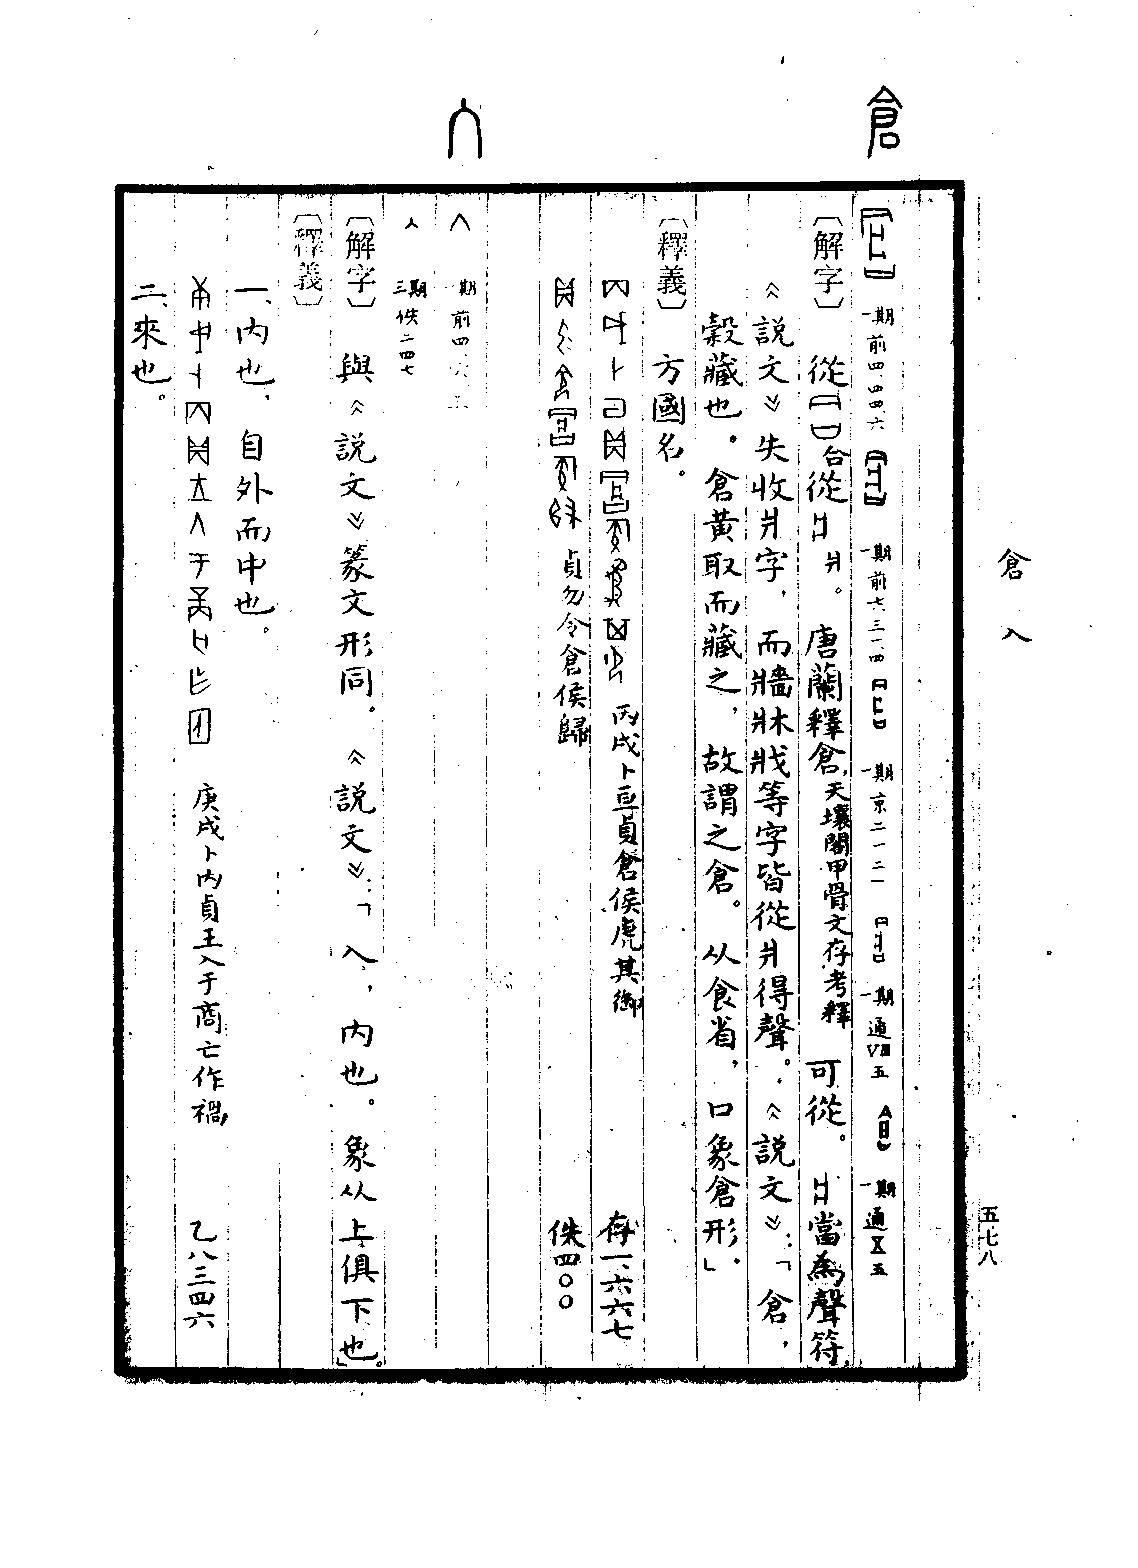 倉 入
五七八
倉
一期前四·四四·六 一期前七·三一·四 一期京二一二一 一期通Ⅷ五 一期通Ⅹ五
〔解字〕從合從爿。唐蘭釋倉，天壤閣甲骨文存考釋 可從。爿當為聲符，
《說文》失收爿字，而牆牀戕等字皆從爿得聲。《說文》：「倉，
穀藏也。倉黃取而藏之，故謂之倉。从食省，口象倉形。」
〔釋義〕方國名。
丙戌卜亘貞倉侯虎其御 存一·六六七
貞勿令倉侯歸 佚四〇〇
入
一期前四
三期佚二四七
〔解字〕與《說文》篆文形同。《說文》：「入，內也。象从上俱下也」。
〔釋義〕
一、內也，自外而中也。
庚戌卜內貞王入于商亡作禍 乙八三四六
二、來也。